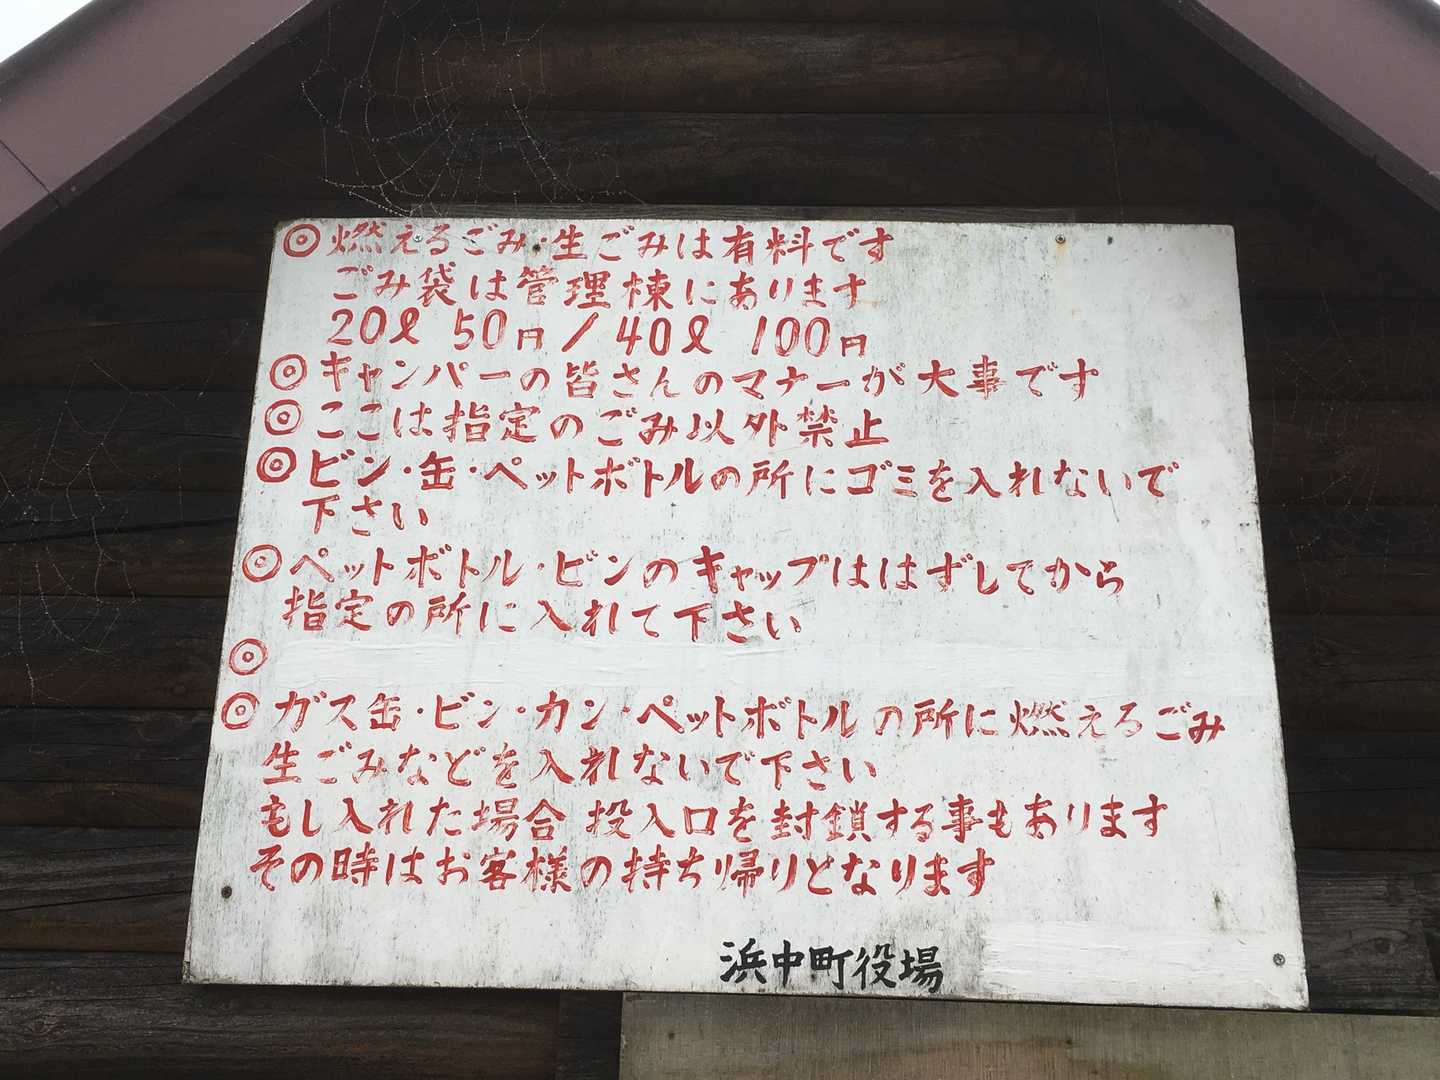 ◎燃えるごみ・生ごみは有料です
ごみ袋は管理棟にあります
20ℓ 50円/40ℓ 100円
◎キャンパーの皆さんのマナーが大事です
◎ここは指定のごみ以外禁止
◎ビン・缶・ペットボトルの所にゴミを入れないで
下さい
◎ペットボトル・ビンのキャップははずしてから
指定の所に入れて下さい
◎
◎ガス缶・ビン・カン・ペットボトルの所に燃えるごみ
生ごみなどを入れないで下さい
もし入れた場合 投入口を封鎖する事もあります
その時はお客様の持ち帰りとなります
浜中町役場